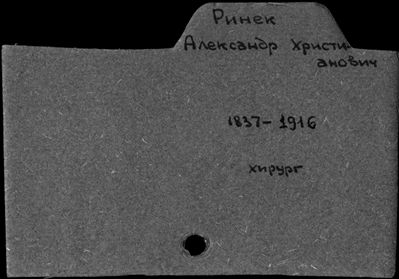 Ринек
Александр Христи-
анович
1837-1916
хирург